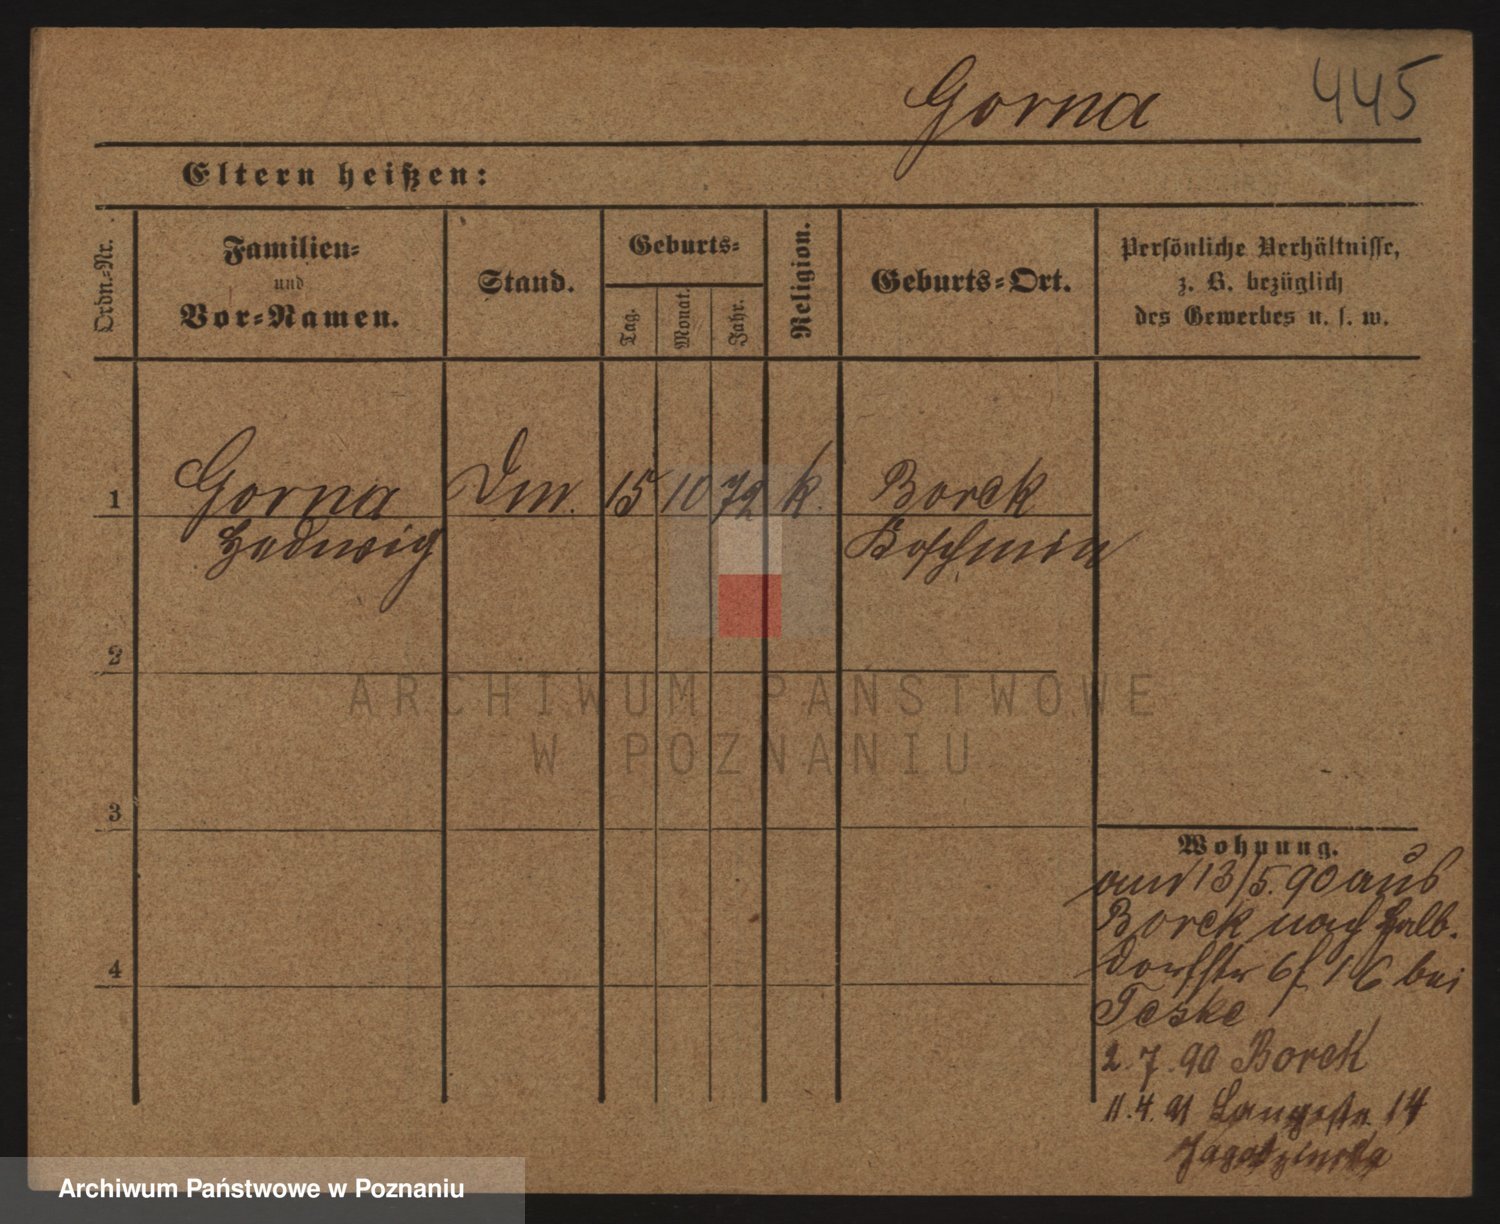 Gorna 445
Eltern heißen:
Ordn.-Nr.
Familien-
und
Vor-Namen.
Stand.
Geburts-
Tag.
Monat.
Jahr.
Religion.
Geburts-Ort.
Persönliche Verhältnisse,
z. B. bezüglich
des Gewerbes u. s. w.
1 Gorna Dm. 15 10 72 k. Borek
Hedwig Koschmin
2
3
4
Wohnung.
am 13/5.90 aus
Borek nach Halb-
dorfstr 6 f 1/6 bei
Teske
2.7.90 Borek
11.4.91 Langestr. 14
Jagodzinska
ARCHIWUM PAŃSTWOWE
W POZNANIU
Archiwum Państwowe w Poznaniu